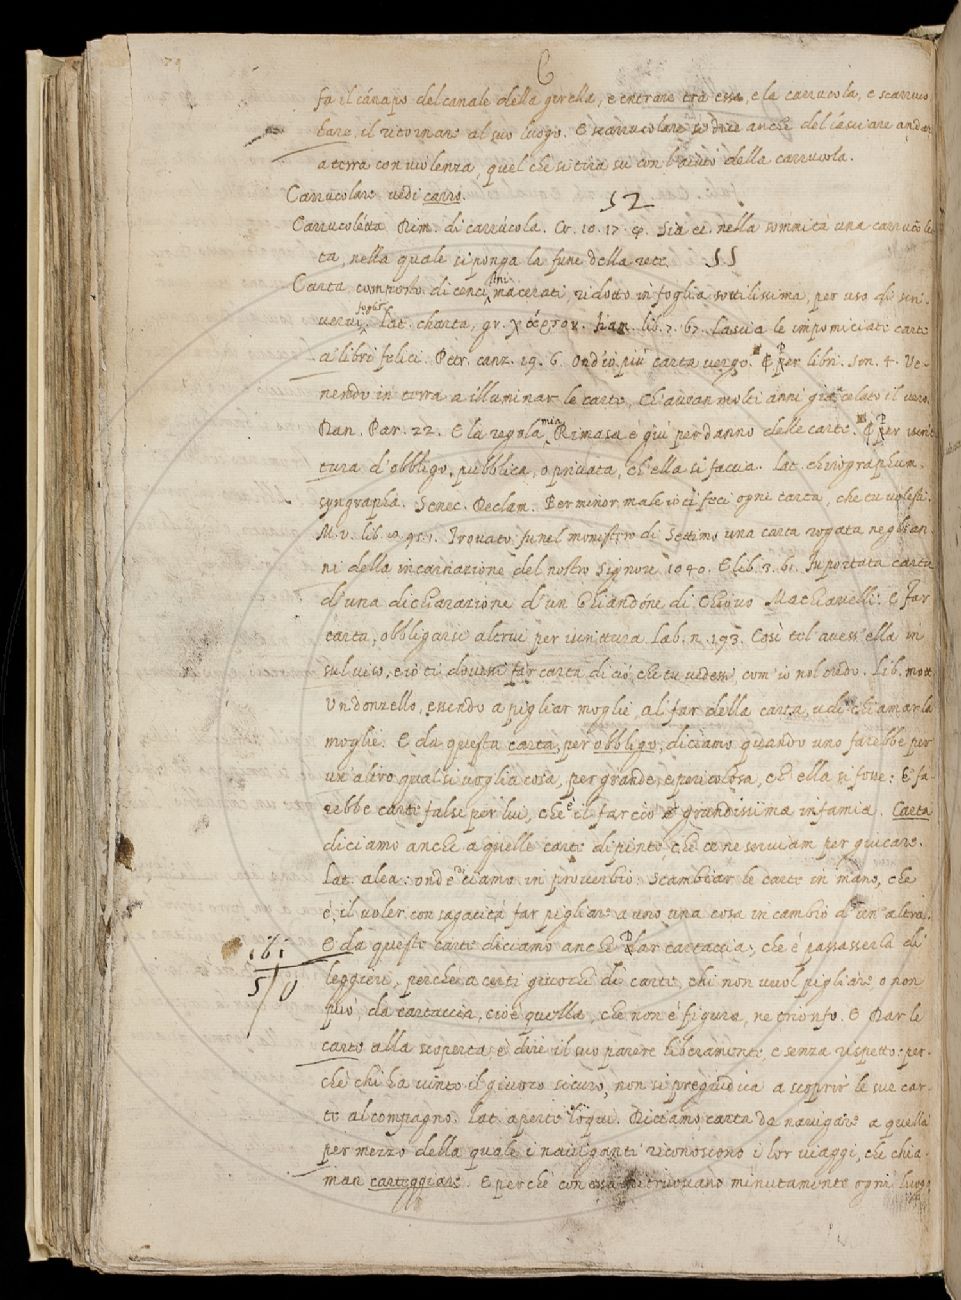 79
C
fa il cánapo del canale della girella, e entrare tra essa, e la carrucola, e scarruco
lare, il ritornare al suo luogo. E scarrucolare si dice anche del lasciare andar
a terra con violenza, quel che si tira su con l'aiuto della carrucola.
Carrucolare vedi carro.
52
Carrucoletta Dim. di carrúcola. Cr. 10. 17. Sia ei nella sommità una carrucole
ta, nella quale si ponga la fune della rete.
Carta composto di cenci lini macerati, ridotto in foglia sottilissima, per uso di scri-
vervi, foglio. Lat. charta, gr. χάρτον. lib. 7. 67. Lascia le impomiciate carte
a libri felici. Petr. canz. 19. 6. Ond'io più carta vergo. Per libri. Son. 4. Ve-
nendo in terra a illuminar le carte, Ch'avean molti anni già celato il vero.
Dan. Par. 22. E la regola mia Rimasa è giù per danno delle carte. Per iscrit
tura d'obbligo, pubblica, o privata, ch'ella si faccia. Lat. chirographum.
syngrapha. Senec. Declam. Per minor male io ti feci ogni carta, che tu volesti.
M. v. lib. Trovato fu nel monistero di Settimo una carta rogata negli an-
ni della incarnazione del nostro Signore 1040. E lib. 3. 61. Fu portata carta
d'una dichiarazione d'un Machiavelli. E far
carta, obbligarsi altrui per iscrittura. Lab. n. 193. Così tel' avess'ella in
sul viso, e io ti dovessi far carta di ció, che tu vedessi, com'io nol credo. Lib. mott
Un donzello, essendo a pigliar moglie, al far della carta, udì chiamar la
moglie. E da questa carta, per obbligo, diciamo quando uno farebbe per
un'altro qual si voglia cosa, per grande, e pericolosa, ched ella si fosse: E fa-
rebbe carte false per lui, che è il far ció grandissima infamia. Carta
diciamo anche a quelle carte dipinte, che ce ne serviam per giucare.
Lat. alea: onde diciamo in proverbio. Scambiar le carte in mano, che
è, il voler con sagacità far pigliare a uno una cosa in cambio d'un'altra.
E da queste carte diciamo anche Dar cartaccia, che è passarsela di
ibi
leggieri, perché a certi giuochi di carte, chi non vuol pigliare, o non
può, dà cartaccia, cioè quella, che non è figura, ne trionfo. E Dar le
carte alla scoperta: è dire il suo parere liberamente, e senza rispetto: per-
chè chi ha vinto il giuoco sicuro, non si pregiudica a scoprir le sue car-
te al compagno. Lat. aperte loqui. Diciamo carta da navigare a quella
per mezzo della quale i naviganti riconoscono i lor viaggi, che chia-
man carteggiare. E perchè con essa ritruovano minutamente ogni luogo